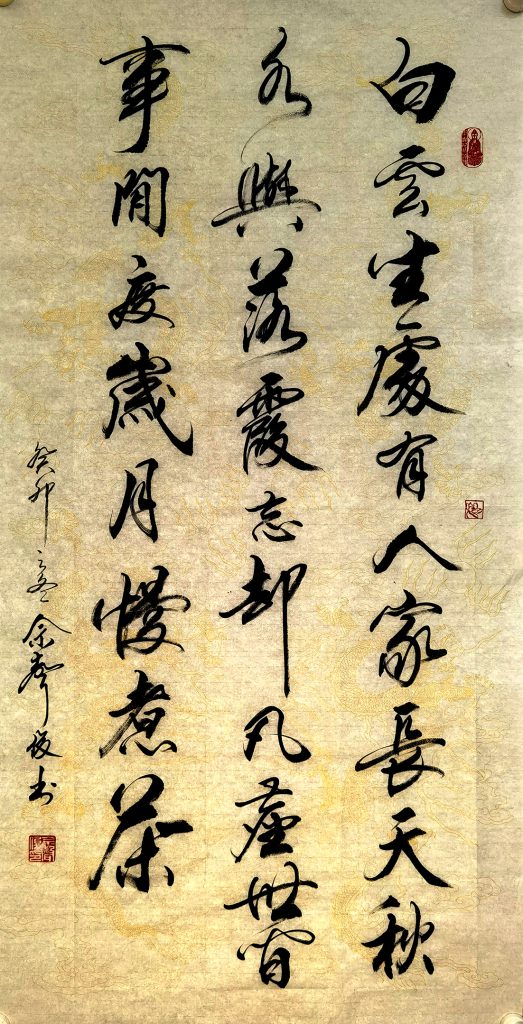 白雲生處有人家長天秋
水與落霞忘却凡塵世間
事閒度歲月慢煮茶
癸卯 余聲 书